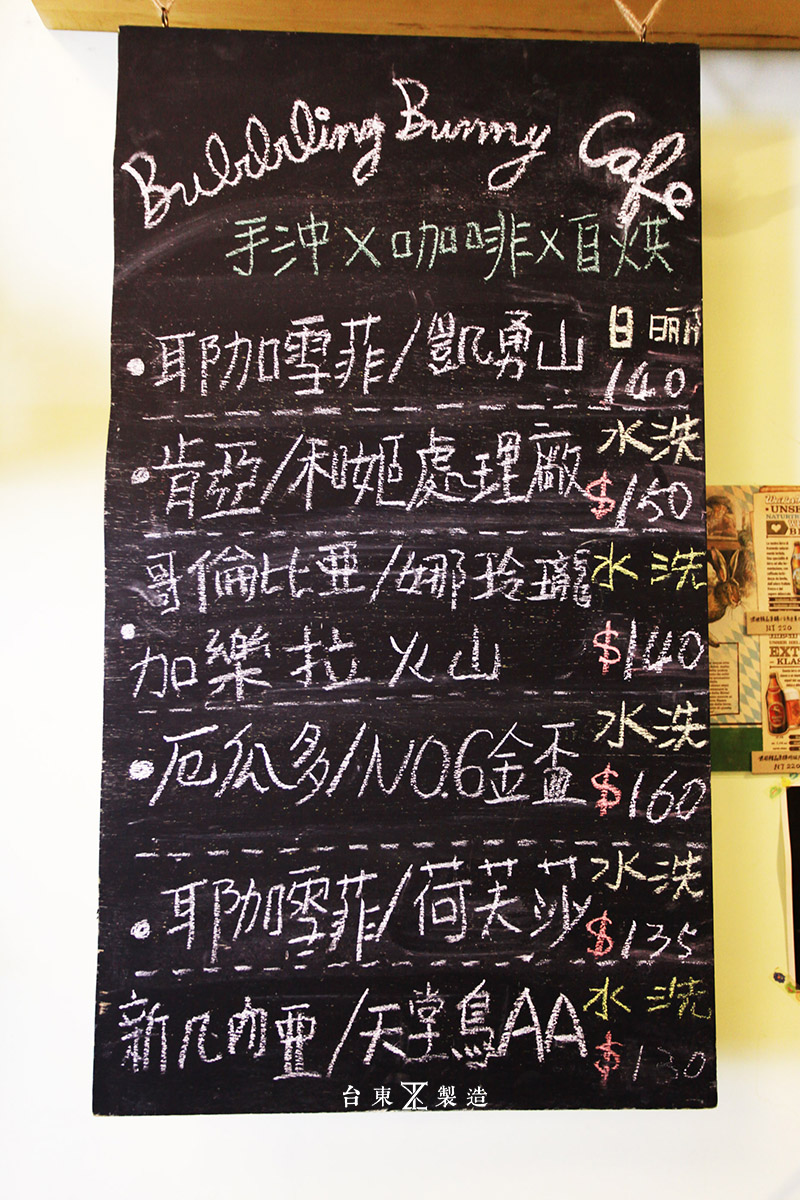 Bubbling Bunny Cafe
手沖X咖啡X自烘
耶加雪菲/凱勇山 日晒
140
肯亞/和姬處理廠 水洗
$150
哥倫比亞/娜玲瓏 水洗
加樂拉火山 $140
厄瓜多/NO.6金盃 水洗
$160
耶加雪菲/荷芙莎 水洗
$135
新几內亞/天堂鳥AA 水洗
$130
台東製造
NT 220
NT 220
UNSE
EXT
KLAS